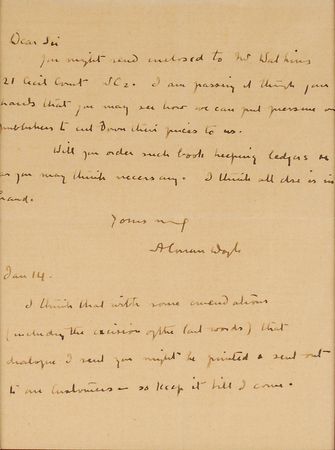 Dear Sir
You might send enclosed to Mr Watkins
21 Cecil Court SC2. I am passing it through your
hands that you may see how we can put pressure on
publishers to cut down their prices to us.
Will you order such book keeping ledgers &c
as you may think necessary. I think all else is in
hand.
Yours truly
A Conan Doyle
Jan 14.
I think that with some emendations
(including the excision of the last words) that
dialogue I sent you might be printed & sent out
to our customers – so keep it till I come.